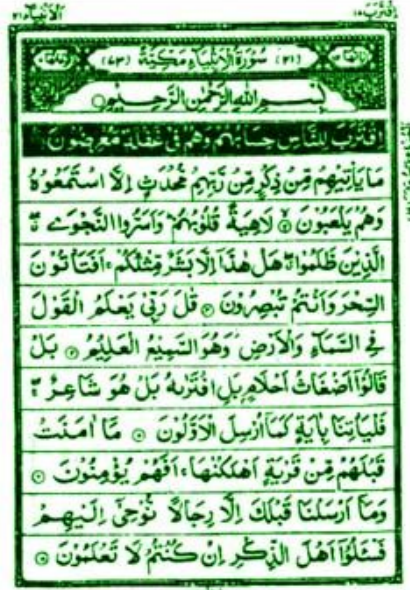 اقترب ١٧
الانبیاء ٢١
(٢١) سُوْرَةُ الْاَنْۢبِيَآءِ مَكِّيَّةٌ (٧٣)
بِسْمِ اللهِ الرَّحْمٰنِ الرَّحِيْمِ
اِقْتَرَبَ لِلنَّاسِ حِسَابُهُمْ وَهُمْ فِيْ غَفْلَةٍ مُّعْرِضُوْنَ
مَا يَاْتِيْهِمْ مِّنْ ذِكْرٍ مِّنْ رَّبِّهِمْ مُّحْدَثٍ اِلَّا اسْتَمَعُوْهُ
وَهُمْ يَلْعَبُوْنَ ۝ لَاهِيَةً قُلُوْبُهُمْ وَاَسَرُّوا النَّجْوَى
الَّذِيْنَ ظَلَمُوْا هَلْ هٰذَا اِلَّا بَشَرٌ مِّثْلُكُمْ اَفَتَاْتُوْنَ
السِّحْرَ وَاَنْتُمْ تُبْصِرُوْنَ ۝ قٰلَ رَبِّيْ يَعْلَمُ الْقَوْلَ
فِي السَّمَآءِ وَالْاَرْضِ وَهُوَ السَّمِيْعُ الْعَلِيْمُ ۝ بَلْ
قَالُوْٓا اَضْغَاثُ اَحْلَامٍ بَلِ افْتَرٰىهُ بَلْ هُوَ شَاعِرٌ
فَلْيَاْتِنَا بِاٰيَةٍ كَمَآ اُرْسِلَ الْاَوَّلُوْنَ ۝ مَآ اٰمَنَتْ
قَبْلَهُمْ مِّنْ قَرْيَةٍ اَهْلَكْنٰهَا اَفَهُمْ يُؤْمِنُوْنَ ۝
وَمَآ اَرْسَلْنَا قَبْلَكَ اِلَّا رِجَالًا نُّوْحِيْٓ اِلَيْهِمْ
فَسْـَٔلُوْٓا اَهْلَ الذِّكْرِ اِنْ كُنْتُمْ لَا تَعْلَمُوْنَ ۝